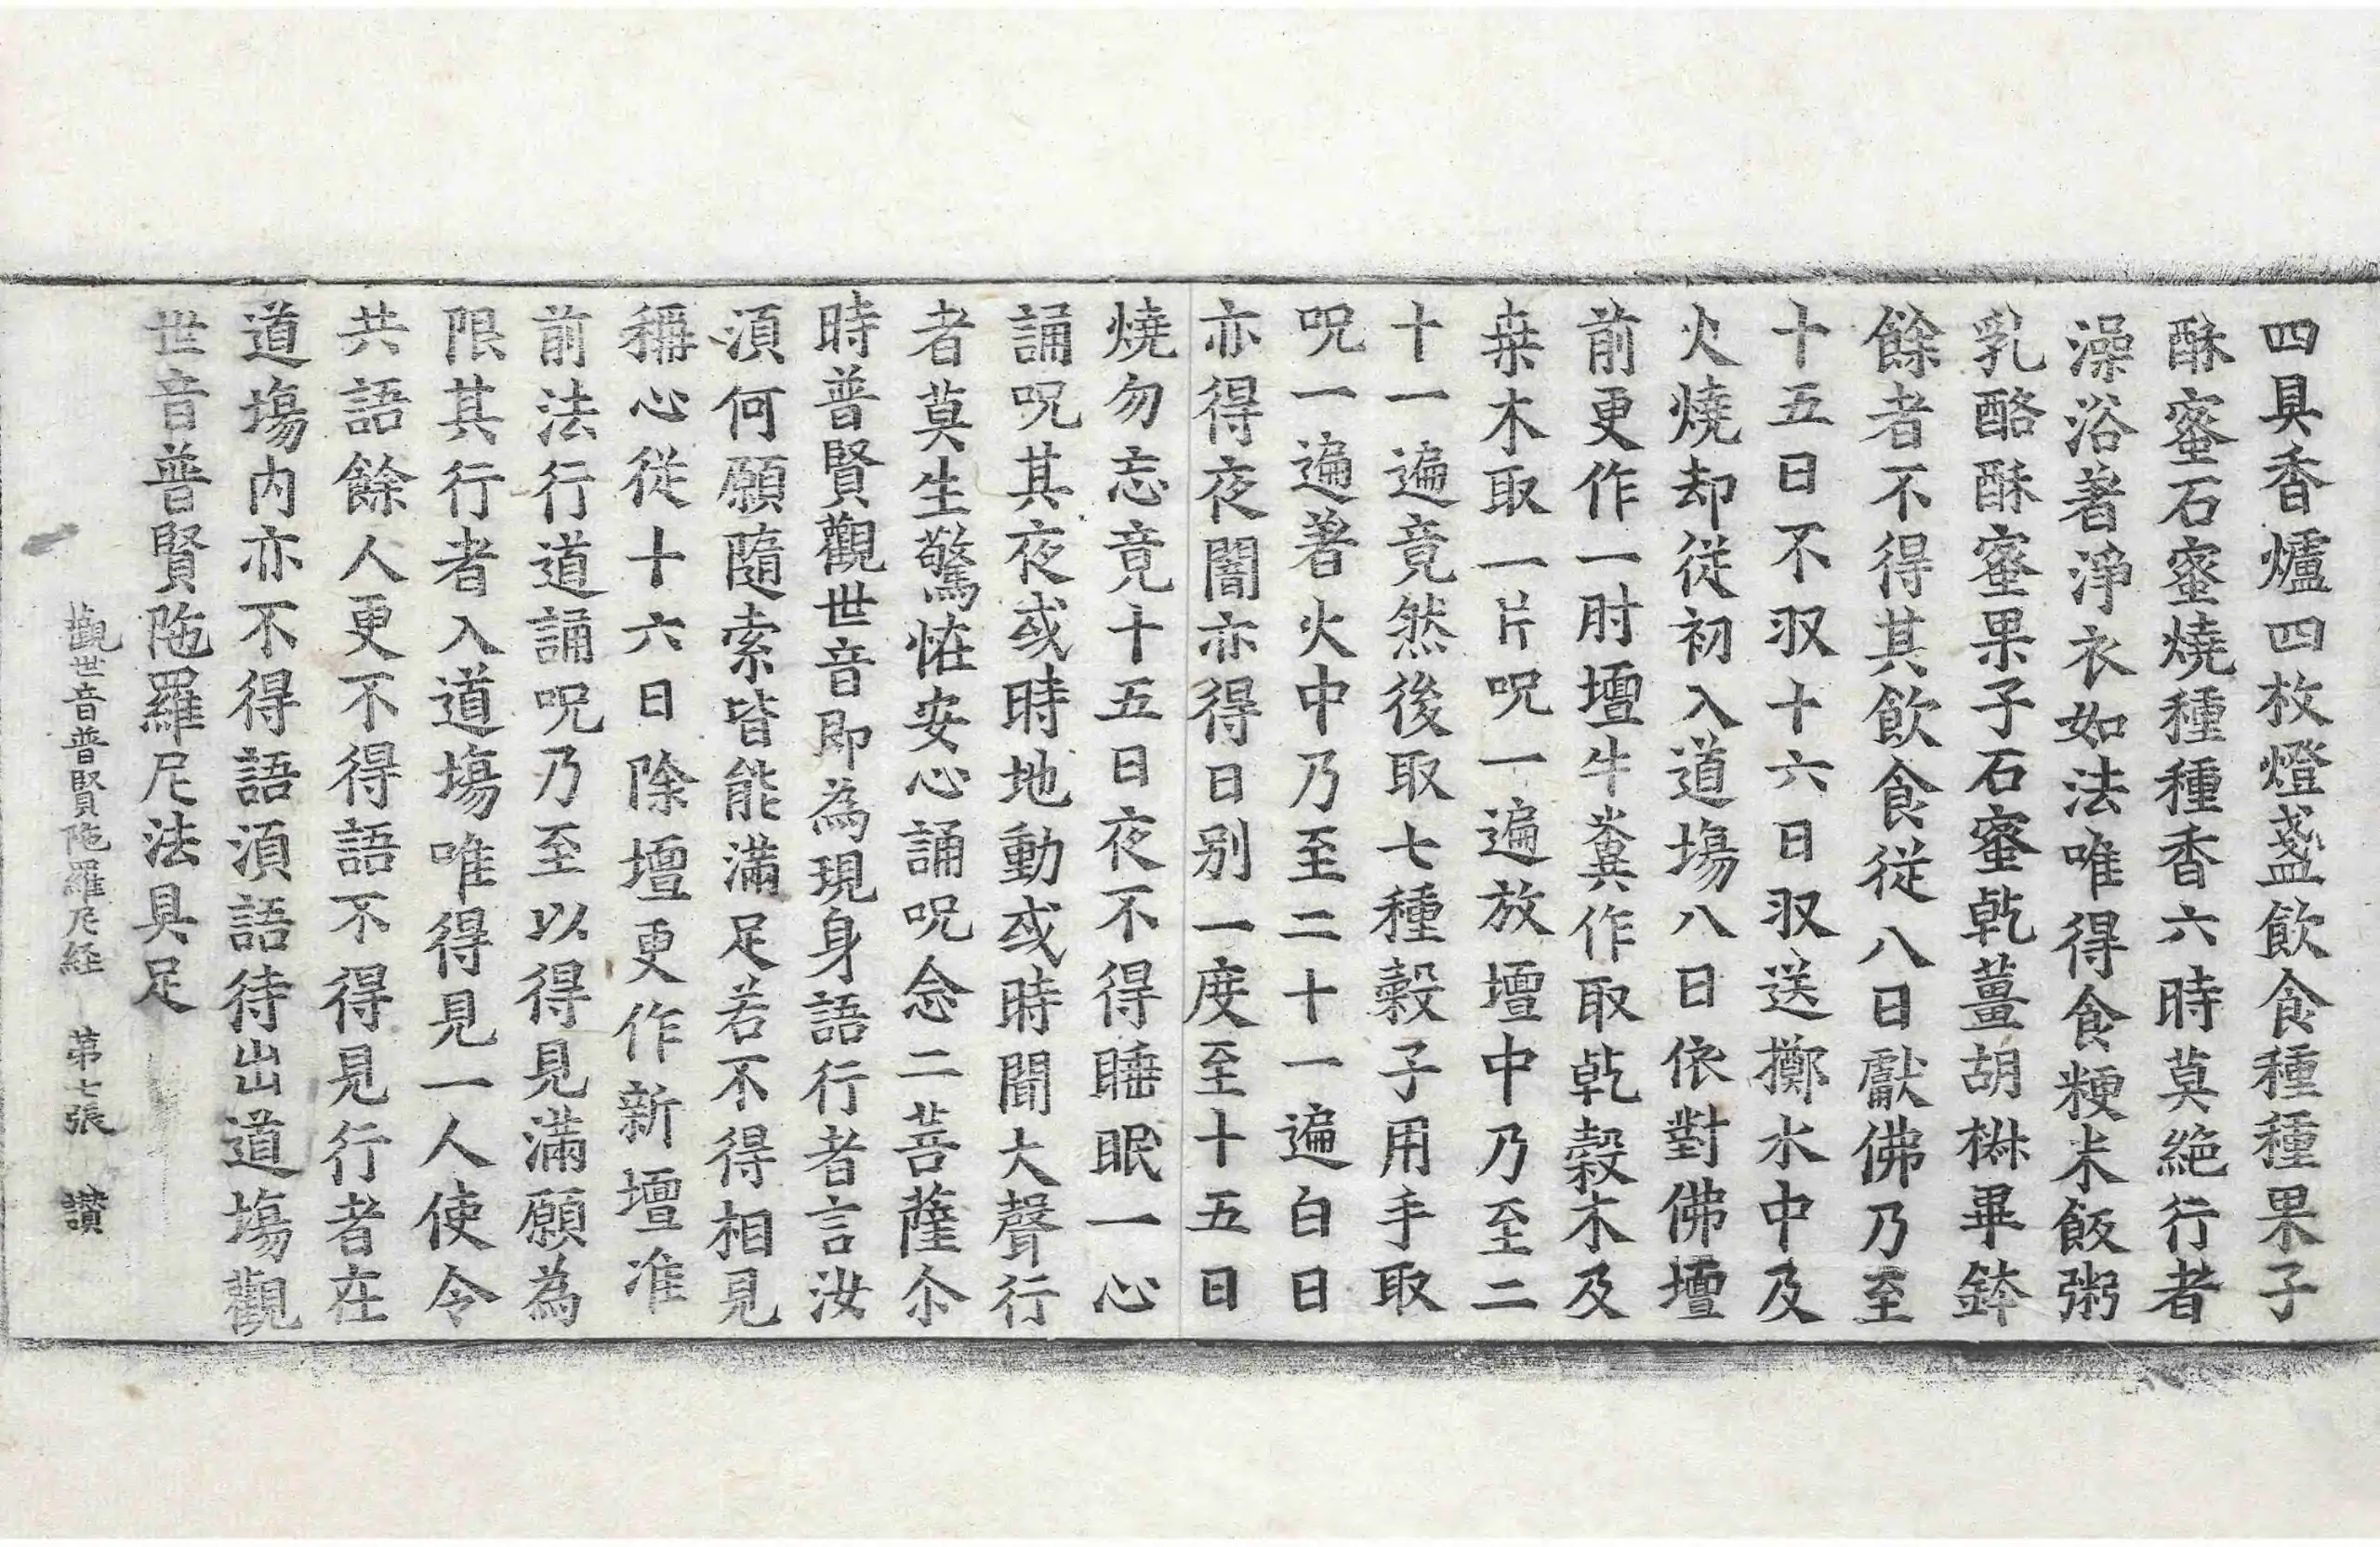 四具香爐四枚燈盞飲食種種果子
酥蜜石蜜燒種種香六時莫絶行者
澡浴著淨衣如法唯得食粳米飯粥
乳酪酥蜜果子石蜜乾薑胡椒畢鉢
餘者不得其飲食従八日獻佛乃至
十五日不収十六日収送擲水中及
火燒却從初入道塲八日依對佛壇
前更作一肘壇牛糞作取乾榖木及
桒木取一片呪一遍放壇中乃至二
十一遍竟然後取七種穀子用手取
呪一遍著火中乃至二十一遍白日
亦得夜闇亦得日別一度至十五日
燒勿忘竟十五日夜不得睡眠一心
誦呪其夜或時地動或時聞大聲行
者莫生驚恠安心誦呪念二菩薩尒
時普賢觀世音即為現身語行者言汝
湏何願隨索皆能滿足若不得相見
稱心從十六日除壇更作新壇准
前法行道誦呪乃至以得見滿願為
限其行者入道塲唯得見一人使令
共語餘人更不得語不得見行者在
道塲内亦不得語湏語待出道塲觀
世音普賢陁羅尼法具足
觀世音普賢陁羅尼経 第七張 讃